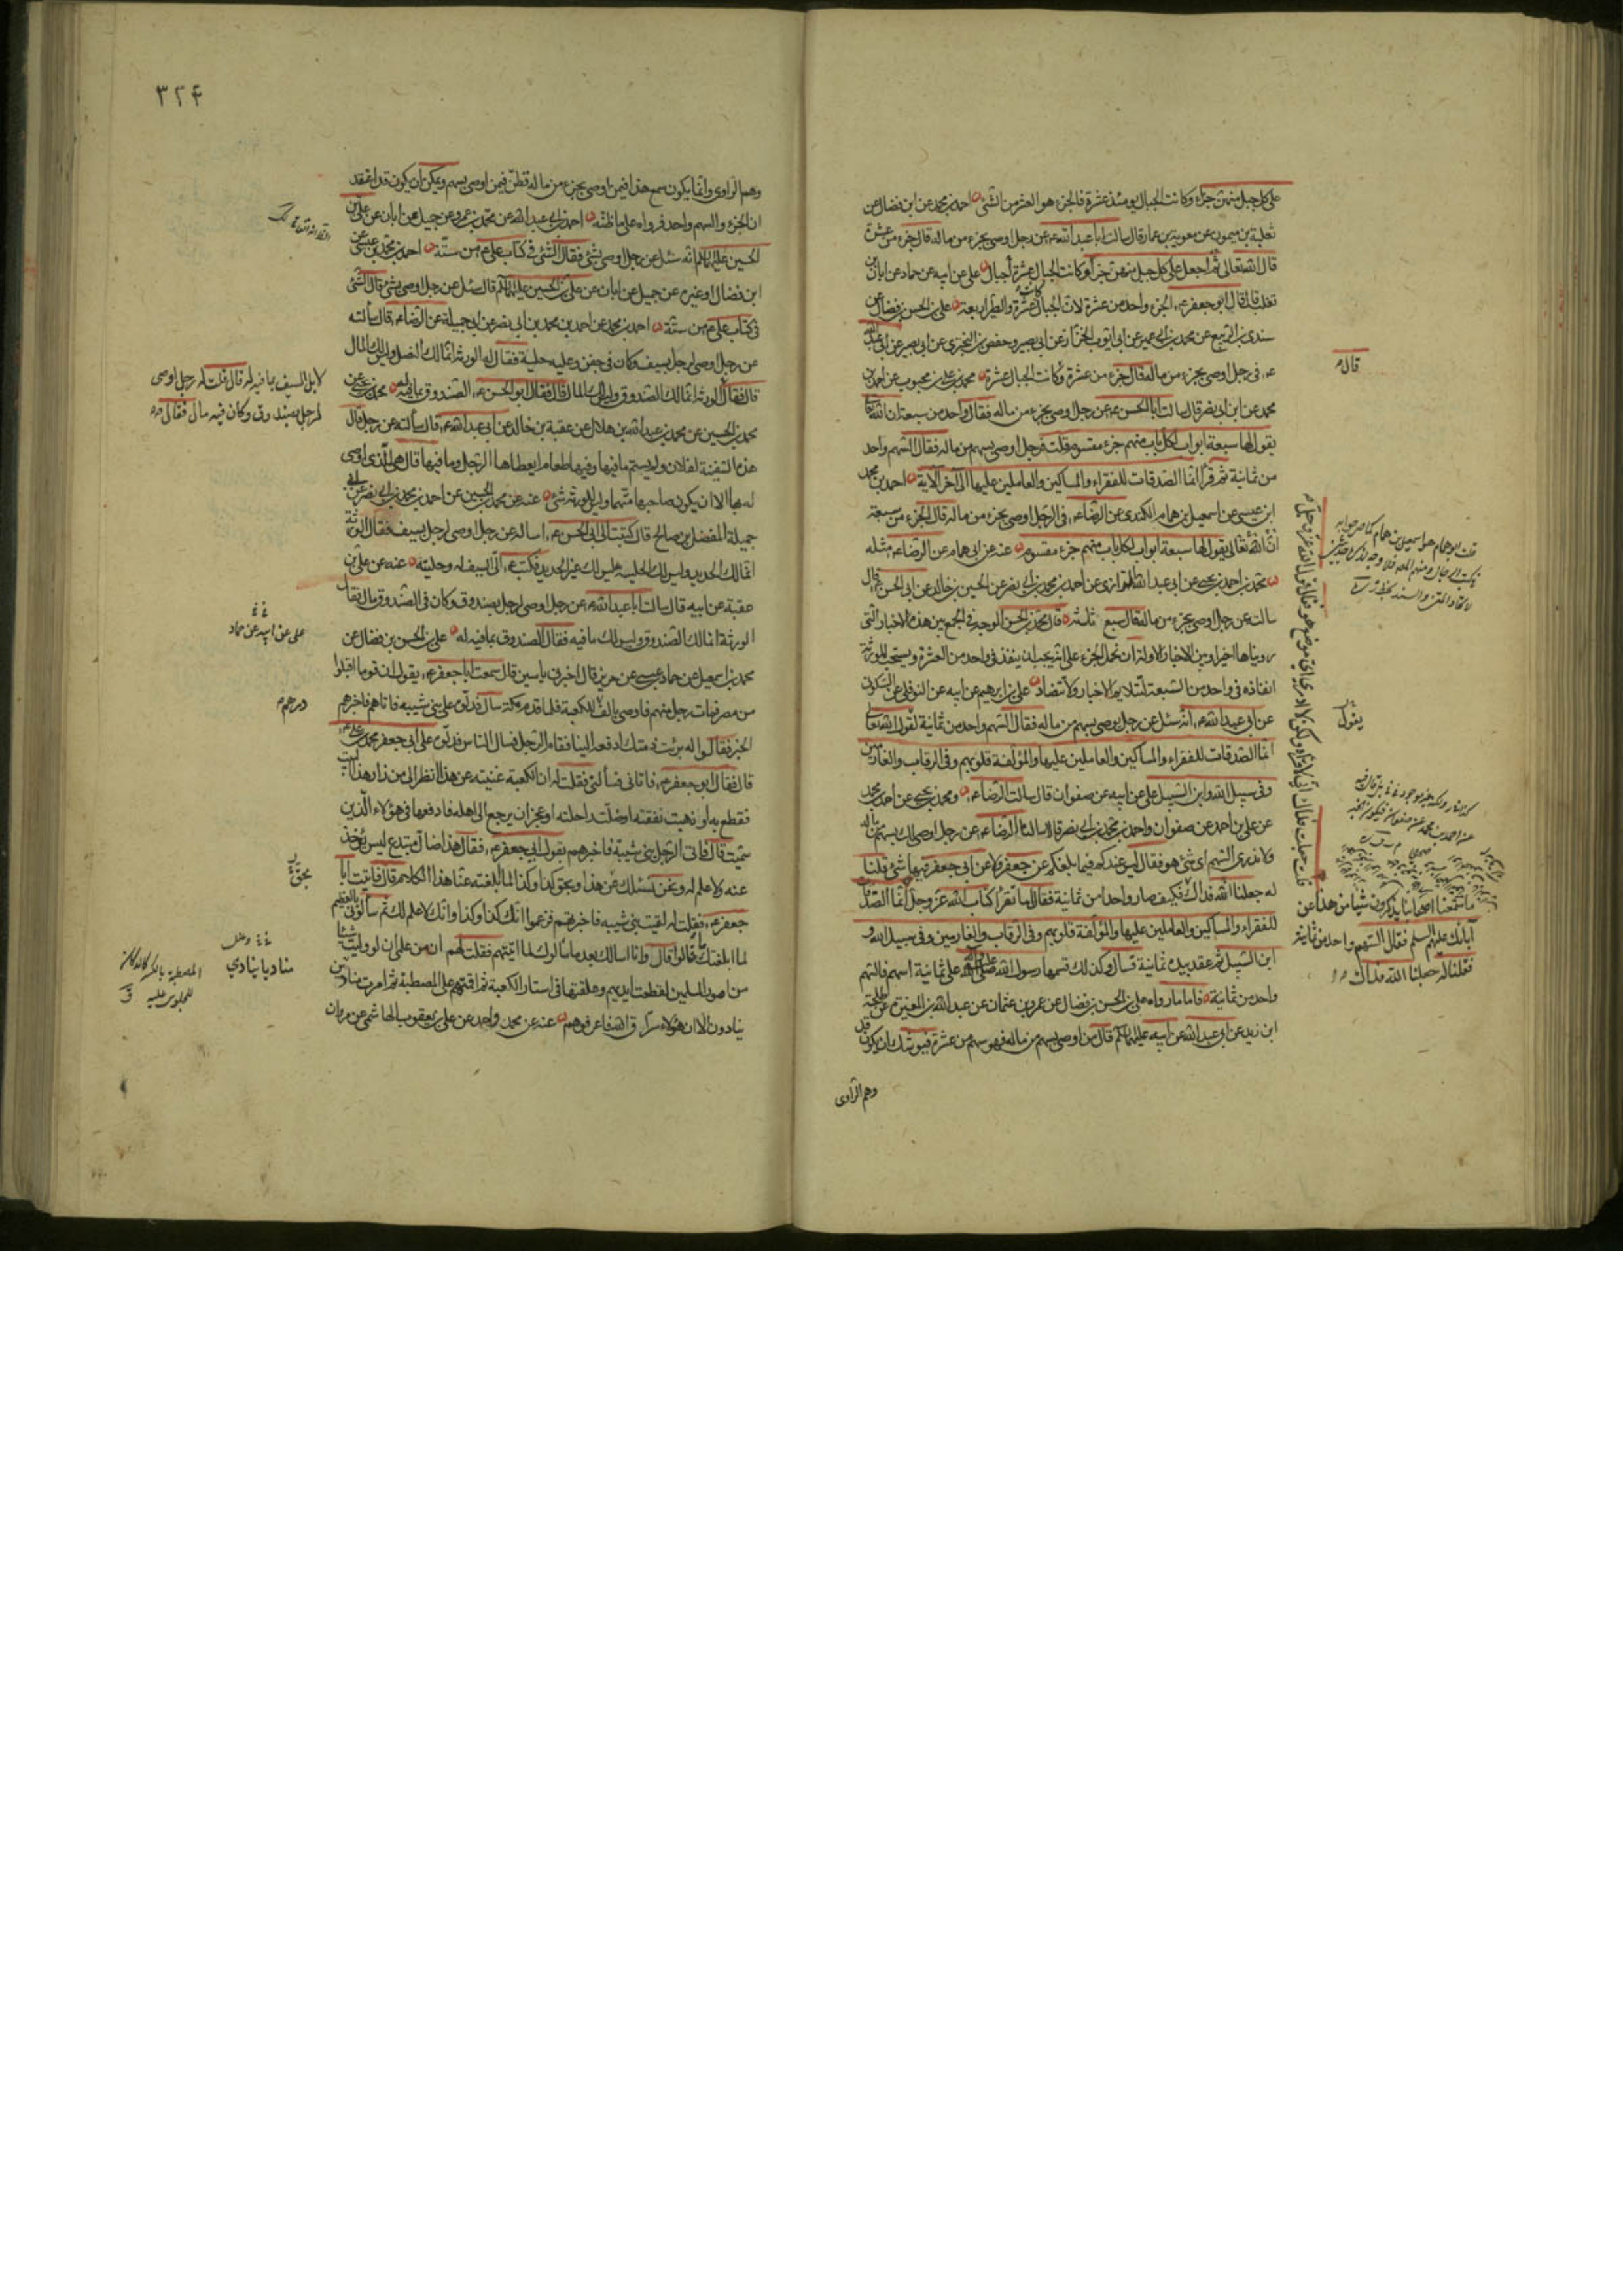 على كل جبل منهن جزءًا وكانت الجبال يومئذ عشرة فالجزء هو العشر من الشئ احمد بن محمد عن ابن فضال عن
ثعلبة بن ميمون عن معوية بن عمار قال سالت ابا عبد الله ع عن رجل اوصى بجزء من ماله قال جزء من عشرة
قال الله تعالى ثم اجعل على كل جبل منهن جزءا وكانت الجبال عشرة أجبال على عن ابيه عن حماد عن ابان بن
تغلب قال قال ابو جعفر ع الجزء واحد من عشرة لان الجبال عشرة والطير اربعة على بن الحسن بن فضال عن
سندى بن الربيع عن محمد بن ابى عمير عن ابى ايوب الخزاز عن ابى بصير وحفص بن البخترى عن ابى بصير عن ابى عبد الله
ع فى رجل اوصى بجزء من ماله قال جزء من عشرة وكانت الجبال عشرة محمد بن على بن محبوب عن احمد بن
محمد عن ابن ابى نصر قال سالت ابا الحسن ع عن رجل اوصى بجزء من ماله فقال واحد من سبعة ان الله تعالى
يقول لها سبعة ابواب لكل باب منهم جزء مقسوم قلت فرجل اوصى بسهم من ماله فقال السهم واحد
من ثمانية ثم قرأ انما الصدقات للفقراء والمساكين والعاملين عليها الى آخر الآية احمد بن محمد
ابن عيسى عن اسمعيل بن همام الكندى عن الرضا ع فى الرجل اوصى بجزء من ماله قال الجزء من سبعة
ان الله تعالى يقول لها سبعة ابواب لكل باب منهم جزء مقسوم عنه عن ابى همام عن الرضا ع مثله
محمد بن احمد بن يحيى عن ابى عبد الله الرازى عن احمد بن محمد بن ابى نصر عن الحسين بن خالد عن ابى الحسن ع قال
سالته عن رجل اوصى بجزء من ماله قال سبع ثلثه قال محمد بن الحسن الوجه فى الجمع بين هذه الاخبار التى
رويناها اخيرا وبين الاخبار الاولة ان نحمل الجزء على انه يجب ان ينفذ فى واحد من العشرة ويستحب للورثة
انفاذه فى واحد من السبعة لتتلايم الاخبار ولا تتضاد على بن ابرهيم عن ابيه عن النوفلى عن السكونى
عن ابى عبد الله ع انه سئل عن رجل يوصى بسهم من ماله فقال السهم واحد من ثمانية لقول الله تعالى
انما الصدقات للفقراء والمساكين والعاملين عليها والمؤلفة قلوبهم وفى الرقاب والغارمين
وفى سبيل الله وابن السبيل على عن ابيه عن صفوان قال سالت الرضا ع ومحمد بن يحيى عن احمد بن محمد
عن على بن احمد عن صفوان واحمد بن محمد بن ابى نصر قالا سالنا الرضا ع عن رجل اوصى لك بسهم من ماله
ولا ندرى السهم اى شئ هو فقال ليس عندكم فيما بلغكم عن جعفر ولا عن ابى جعفر فيها شئ قلنا
له جعلنا الله فداك فكيف صار واحدا من ثمانية فقال اما تقرأ كتاب الله عز وجل انما الصدقات
للفقراء والمساكين والعاملين عليها والمؤلفة قلوبهم وفى الرقاب والغارمين وفى سبيل الله و
ابن السبيل ثم عقد بيده ثمانية قال وكذلك قسمها رسول الله صلى الله عليه وآله على ثمانية اسهم فالسهم
واحد من ثمانية فاما ما رواه على بن الحسن بن فضال عن عمرو بن عثمان عن عبد الله بن المغيرة عن طلحة
ابن زيد عن ابى عبد الله عن ابيه عليهما السلام قال من اوصى بسهم من ماله فهو سهم من عشرة فيوشك ان يكون قد
وهم الراوى
قال
يقول
ما سمعنا اصحابنا يذكرون شيئا من هذا عن
آبائك عليهم السلم فقال السهم واحد من ثمانية
فقلنا له جعلنا الله فداك
٣٢٤
وهم الراوى وانما يكون سمع هذا فيمن اوصى بجزء من ماله فظن فيمن اوصى بسهم ويمكن ان يكون قد اعتقد
ان الجزء والسهم واحد فرواه على ما ظنه احمد بن ابى عبد الله عن محمد بن عمرو عن جميل عن ابان عن على بن
الحسين عليهما السلام انه سئل عن رجل اوصى بشئ فقال الشئ فى كتاب على ع من ستة احمد بن محمد بن عيسى عن
ابن فضال او غيره عن جميل عن ابان عن على بن الحسين عليهما السلام قال سئل عن رجل اوصى بشئ قال الشئ
فى كتاب على ع من ستة احمد بن محمد عن احمد بن محمد بن ابى نصر عن ابى جميلة عن الرضا ع قال سألته
عن رجل اوصى لرجل بسيف وكان فى جفن وعليه حلية فقال له الورثة انما لك النصل وليس لك المال
قال فقال الورثة انما لك الصندوق وليس لك المال قال فقال ابو الحسن ع الصندوق بما فيه له محمد بن يحيى عن
محمد بن الحسين عن محمد بن عبد الله بن هلال عن عقبة بن خالد عن ابى عبد الله ع قال سألته عن رجل قال
هذه السفينة لفلان ولم يسم ما فيها وفيها طعام ايعطاها الرجل وما فيها قال هى للذى اوصى
له بها الا ان يكون صاحبها متهما وليس للورثة شئ عنه عن محمد بن الحسين عن احمد بن محمد بن ابى نصر عن ابى
جميلة المفضل بن صالح قال كتبت الى ابى الحسن ع اساله عن رجل اوصى لرجل بسيف فقال الورثة
انما لك الحديد وليس لك الحلية ليس لك غير الحديد فكتب ع الى السيف له وحليته عنه عن على بن
عقبة عن ابيه قال سالت ابا عبد الله ع عن رجل اوصى لرجل بصندوق وكان فى الصندوق مال فقال
الورثة انما لك الصندوق وليس لك ما فيه فقال الصندوق بما فيه له على بن الحسن بن فضال عن
محمد بن اسمعيل عن حماد بن عيسى عن حريز قال اخبرنى ياسين قال سمعت ابا جعفر ع يقول ان قوما اقبلوا
من مصر فمات رجل منهم فاوصى بالف للكعبة فلما قدم مكة سال فدلوه على بنى شيبه فاتاهم فاخبرهم
الخبر فقالوا له برئت ذمتك ادفعه الينا فقام الرجل فسال الناس فدلوه على ابى جعفر محمد بن على ع
قال فقال ابو جعفر ع فاتانى فسألنى فقلت له ان الكعبة غنيته عن هذا انظر الى من زار هذا البيت
فقطع به او ذهبت نفقته او ضلت راحلته او عجز ان يرجع الى اهله فادفعها فى هؤلاء الذين
سميت قال فاتى الرجل بنى شيبة فاخبرهم بقول ابى جعفر ع فقال هذا ضال مبتدع ليس يؤخذ
عنه ولا علم له ونحن نسئلك عن هذا وبحق كذا وكذا لما ابلغته عنا هذا الكلام قال فاتيت ابا
جعفر ع فقلت له لقيت بنى شيبه فاخبرتهم فزعموا انك كذا وكذا وانك لا علم لك ثم سألونى بالعظيم
لما ابلغتك ما قالوا قال وانا اسالك بعد ما سالوك لما اتيتهم فقلت لهم ان من على ان لو وليت شيئا
من امور المسلمين لقطعت ايديهم وعلقتها فى استار الكعبة ثم اقمتهم على المصطبة ثم امرت منادين
ينادون الا ان هؤلاء سراق الله فاعرفوهم عنه عن محمد واحمد عن على بن يعقوب الهاشمى عن مروان
لا بل السيف بما فيه له قال قلت له رجل اوصى
لرجل بصندوق وكان فيه مال فقال
على عن ابيه عن حماد
درهم
بحق
مناديا ينادي